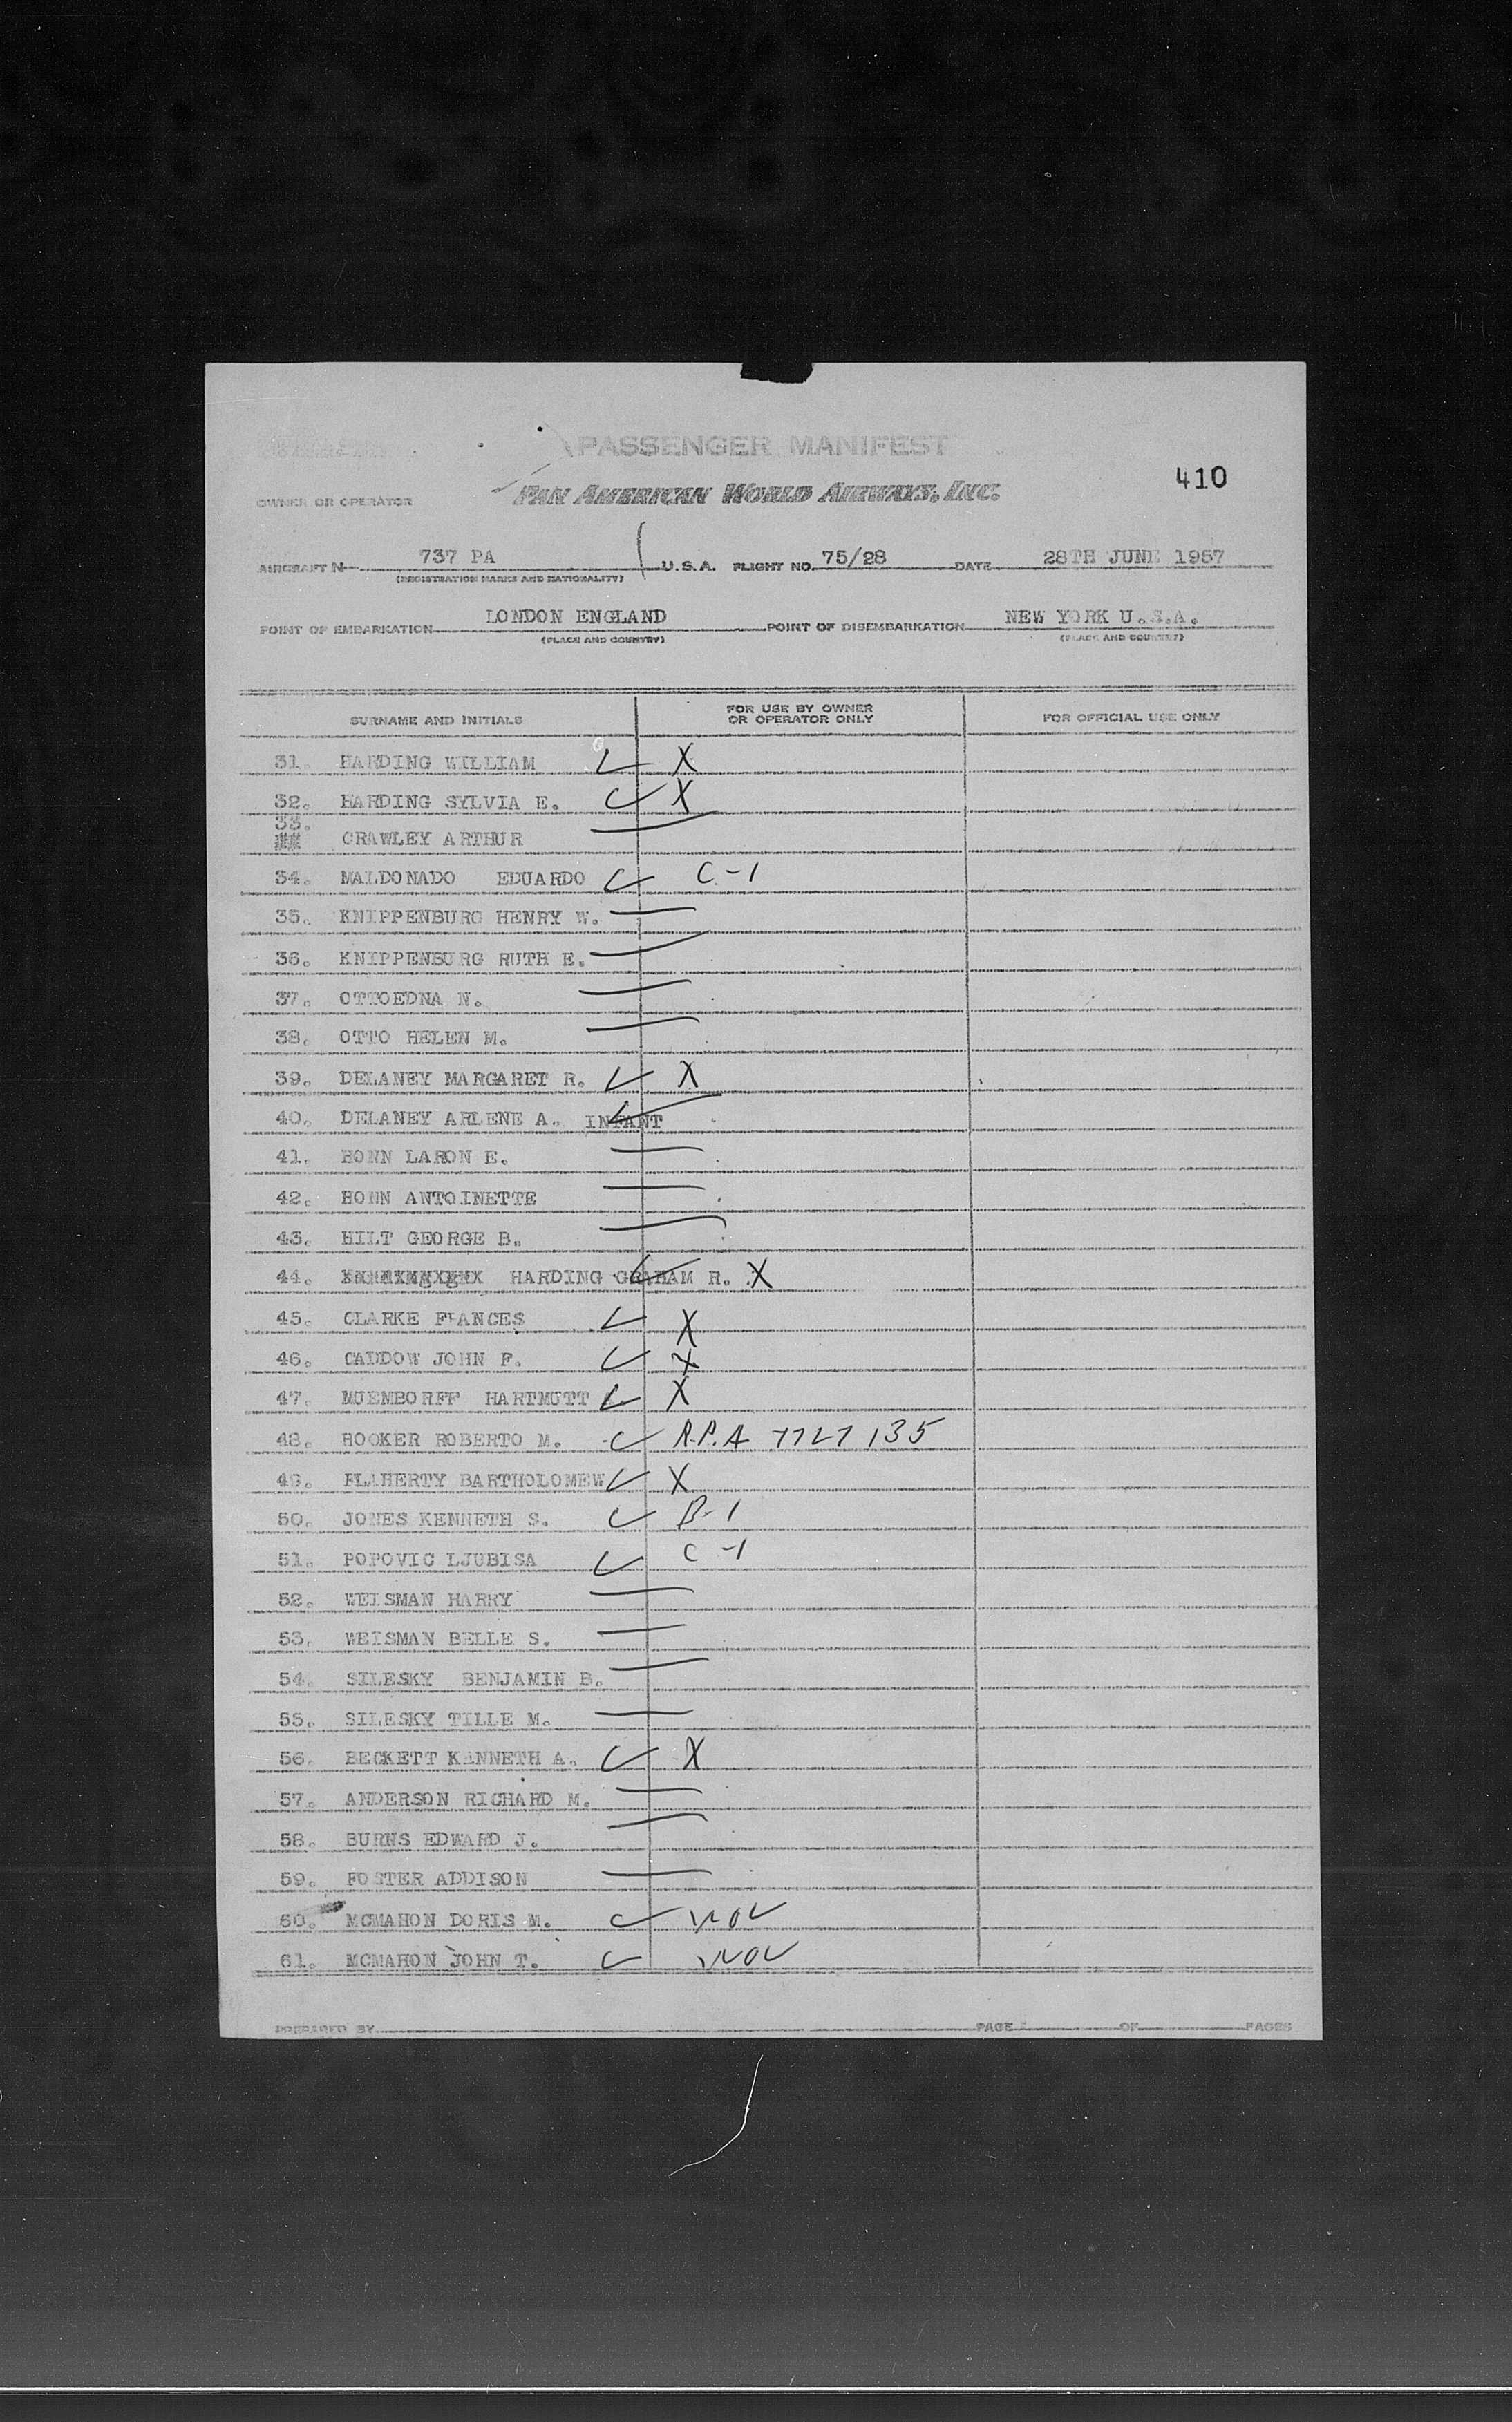 PASSENGER MANIFEST
410
OWNER OR OPERATOR PAN AMERICAN WORLD AIRWAYS, INC.
AIRCRAFT N 737 PA U.S.A. FLIGHT NO. 75/28 DATE 28TH JUNE 1957
(REGISTRATION MARKS AND NATIONALITY)
POINT OF EMBARKATION LONDON ENGLAND POINT OF DISEMBARKATION NEW YORK U.S.A.
(PLACE AND COUNTRY) (PLACE AND COUNTRY)
SURNAME AND INITIALS FOR USE BY OWNER OR OPERATOR ONLY FOR OFFICIAL USE ONLY
31. HARDING WILLIAM ✓ X
32. HARDING SYLVIA E. ✓ X
33. CRAWLEY ARTHUR —
34. MALDONADO EDUARDO ✓ C-1
35. KNIPPENBURG HENRY W. —
36. KNIPPENBURG RUTH E. —
37. OTTOEDNA N. —
38. OTTO HELEN M. —
39. DELANEY MARGARET R. ✓ X
40. DELANEY ARLENE A. INFANT ✓
41. HONN LARON E. —
42. HONN ANTOINETTE —
43. HILT GEORGE B. —
44. HARDING GRAHAM R. ✓ X
45. CLARKE FRANCES ✓ X
46. CADDOW JOHN F. ✓ X
47. MUENBORFF HARTMUTT ✓ X
48. HOOKER ROBERTO M. ✓ R.P.A 7727135
49. FLAHERTY BARTHOLOMEW ✓ X
50. JONES KENNETH S. ✓ B-1
51. POPOVIC LJUBISA ✓ C-1
52. WEISMAN HARRY —
53. WEISMAN BELLE S. —
54. SILESKY BENJAMIN B. —
55. SILESKY TILLE M. —
56. BECKETT KENNETH A. ✓ X
57. ANDERSON RICHARD M. —
58. BURNS EDWARD J. —
59. FOSTER ADDISON —
60. MCMAHON DORIS M. ✓
61. MCMAHON JOHN T. ✓
PREPARED BY PAGE OF PAGES